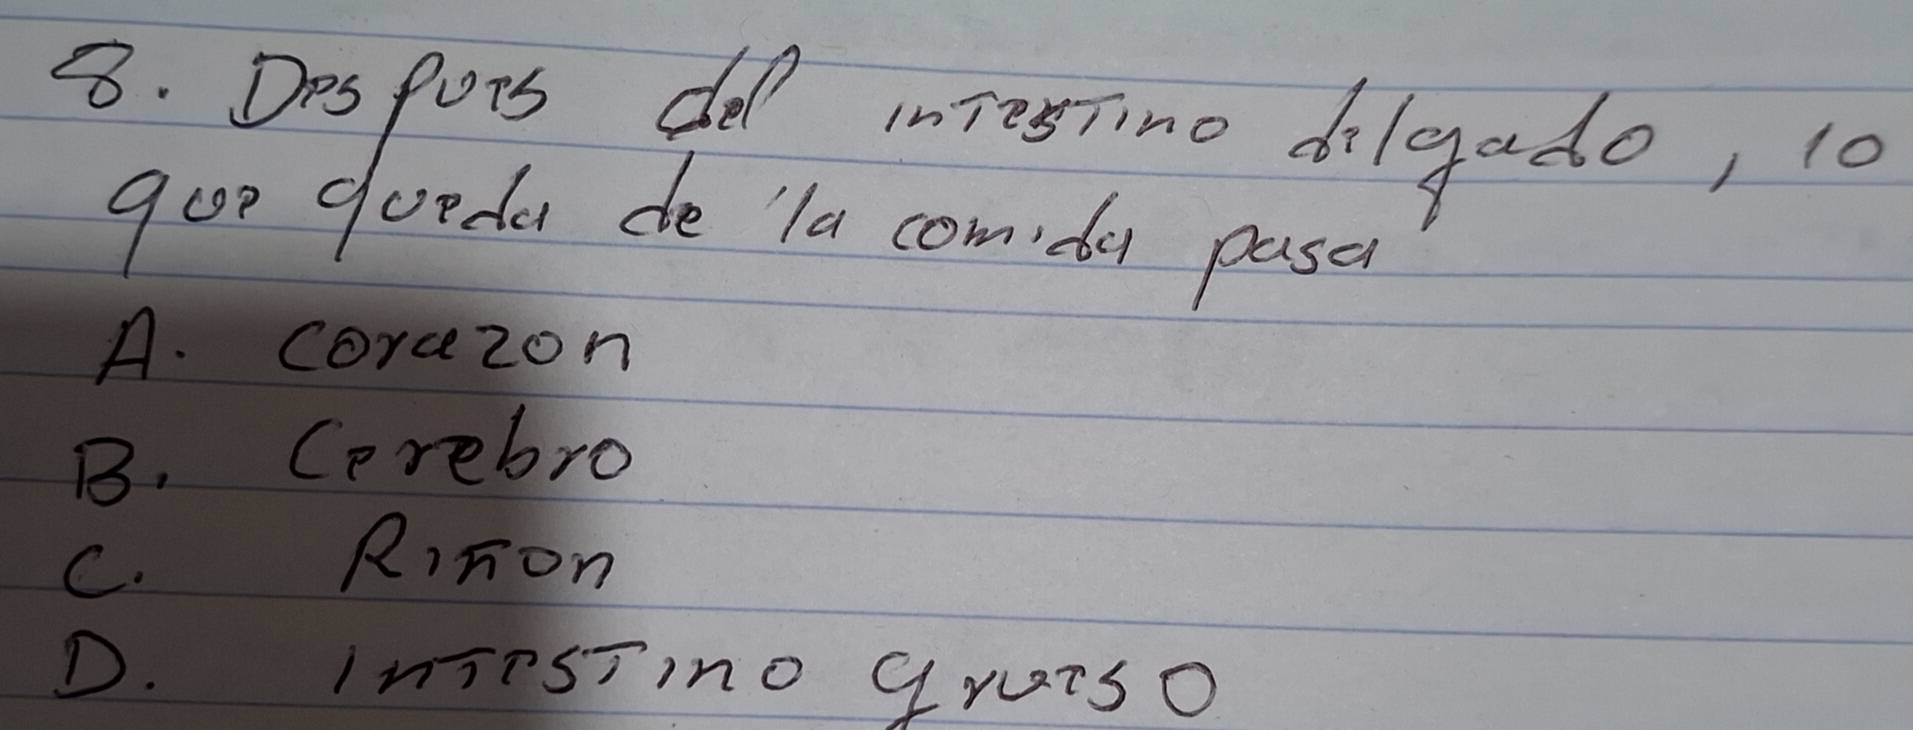 8. Despues del intestino delgado, lo
que queda de la comida pasa
A. corazon
B. Cerebro
C. Riñon
D. intestino grueso